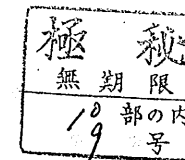 極秘
無期限
10部の内
9号